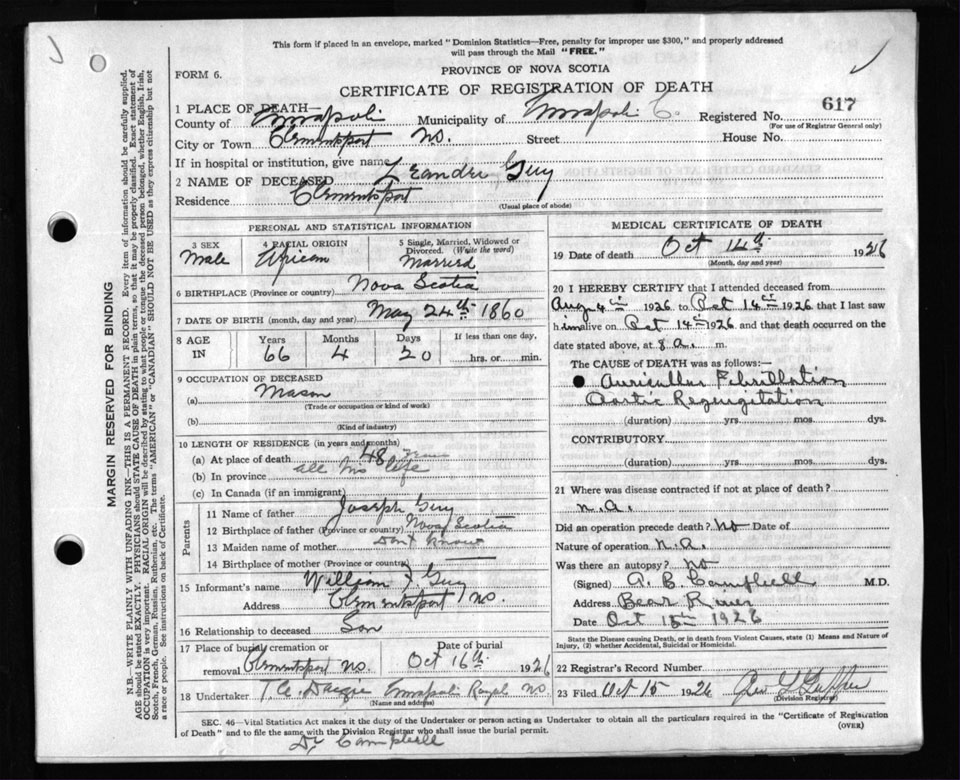 This form if placed in an envelope, marked "Dominion Statistics—Free, penalty for improper use $300," and properly addressed
will pass through the Mail "FREE."
FORM 6.
PROVINCE OF NOVA SCOTIA
CERTIFICATE OF REGISTRATION OF DEATH
617
1 PLACE OF DEATH—
County of Annapolis Municipality of Annapolis C. Registered No.
(For use of Registrar General only)
City or Town Clementsport N.S. Street House No.
If in hospital or institution, give name
2 NAME OF DECEASED Leander Guy
Residence Clementsport
(Usual place of abode)
PERSONAL AND STATISTICAL INFORMATION
3 SEX
Male
4 RACIAL ORIGIN
African
5 Single, Married, Widowed or
Divorced. (Write the word)
Married
6 BIRTHPLACE (Province or country) Nova Scotia
7 DATE OF BIRTH (month, day and year) May 24th 1860
8 AGE IN
Years Months Days
66 4 20
If less than one day,
hrs. or min.
9 OCCUPATION OF DECEASED
(a) Mason
(Trade or occupation or kind of work)
(b)
(Kind of industry)
10 LENGTH OF RESIDENCE (in years and months)
(a) At place of death 48 years
(b) In province all his life
(c) In Canada (if an immigrant)
Parents
11 Name of father Joseph Guy
12 Birthplace of father (Province or country) Nova Scotia
13 Maiden name of mother Dont know
14 Birthplace of mother (Province or country)
15 Informant's name William J. Guy
Address Clementsport N.S.
16 Relationship to deceased Son
17 Place of burial, cremation or
removal Clementsport N.S.
Date of burial
Oct 16th 1926
18 Undertaker Annapolis Royal N.S.
(Name and address)
MEDICAL CERTIFICATE OF DEATH
19 Date of death Oct 14th 1926
(Month, day and year)
20 I HEREBY CERTIFY that I attended deceased from
Aug 4th 1926 to Oct 14th 1926 that I last saw
him alive on Oct 14th 1926 and that death occurred on the
date stated above, at 8 a. m.
The CAUSE OF DEATH was as follows:—
Auricular Fibrillation
Aortic Regurgitation
(duration) yrs. mos. dys.
CONTRIBUTORY
(duration) yrs. mos. dys.
21 Where was disease contracted if not at place of death?
N.A.
Did an operation precede death? No Date of
Nature of operation N.A.
Was there an autopsy? No
(Signed) A. B. Campbell M.D.
Address Bear River
Date Oct 15th 1926
State the Disease causing Death, or in death from Violent Causes, state (1) Means and Nature of
Injury, (2) whether Accidental, Suicidal or Homicidal.
22 Registrar's Record Number
23 Filed Oct 15 1926
(Division Registrar)
SEC. 46—Vital Statistics Act makes it the duty of the Undertaker or person acting as Undertaker to obtain all the particulars required in the "Certificate of Registration
of Death" and to file the same with the Division Registrar who shall issue the burial permit.
(OVER)
Dr Campbell
MARGIN RESERVED FOR BINDING
N.B.—WRITE PLAINLY WITH UNFADING INK—THIS IS A PERMANENT RECORD. Every item of information should be carefully supplied.
AGE should be stated EXACTLY. PHYSICIANS should STATE CAUSE OF DEATH in plain terms, so that it may be properly classified. Exact statement of
OCCUPATION is very important. RACIAL ORIGIN will be described by stating to what people or tongue the deceased person belonged, whether English, Irish,
Scotch, French, German, Russian, Ruthenian, etc. The terms "AMERICAN" or "CANADIAN" SHOULD NOT BE USED as they express citizenship but not
a race or people. See instructions on back of Certificate.